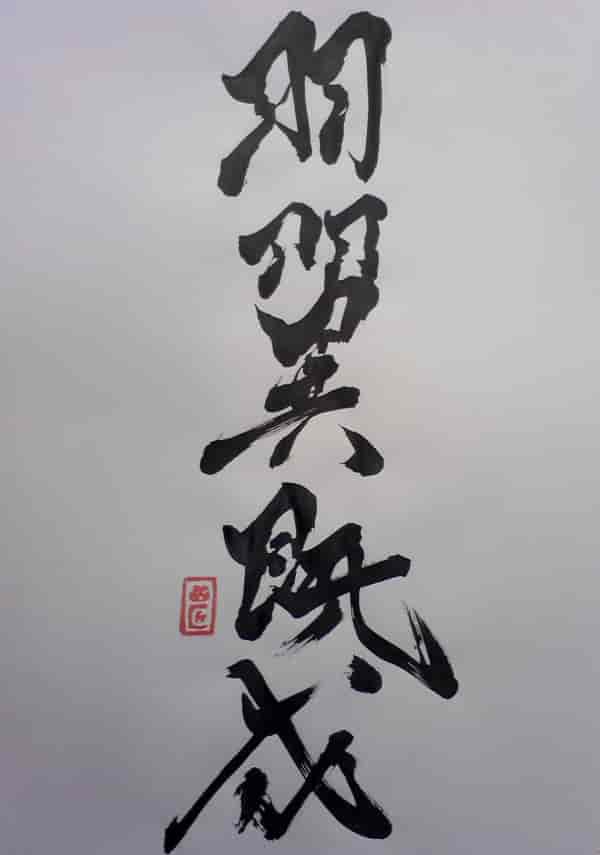 羽翼既成